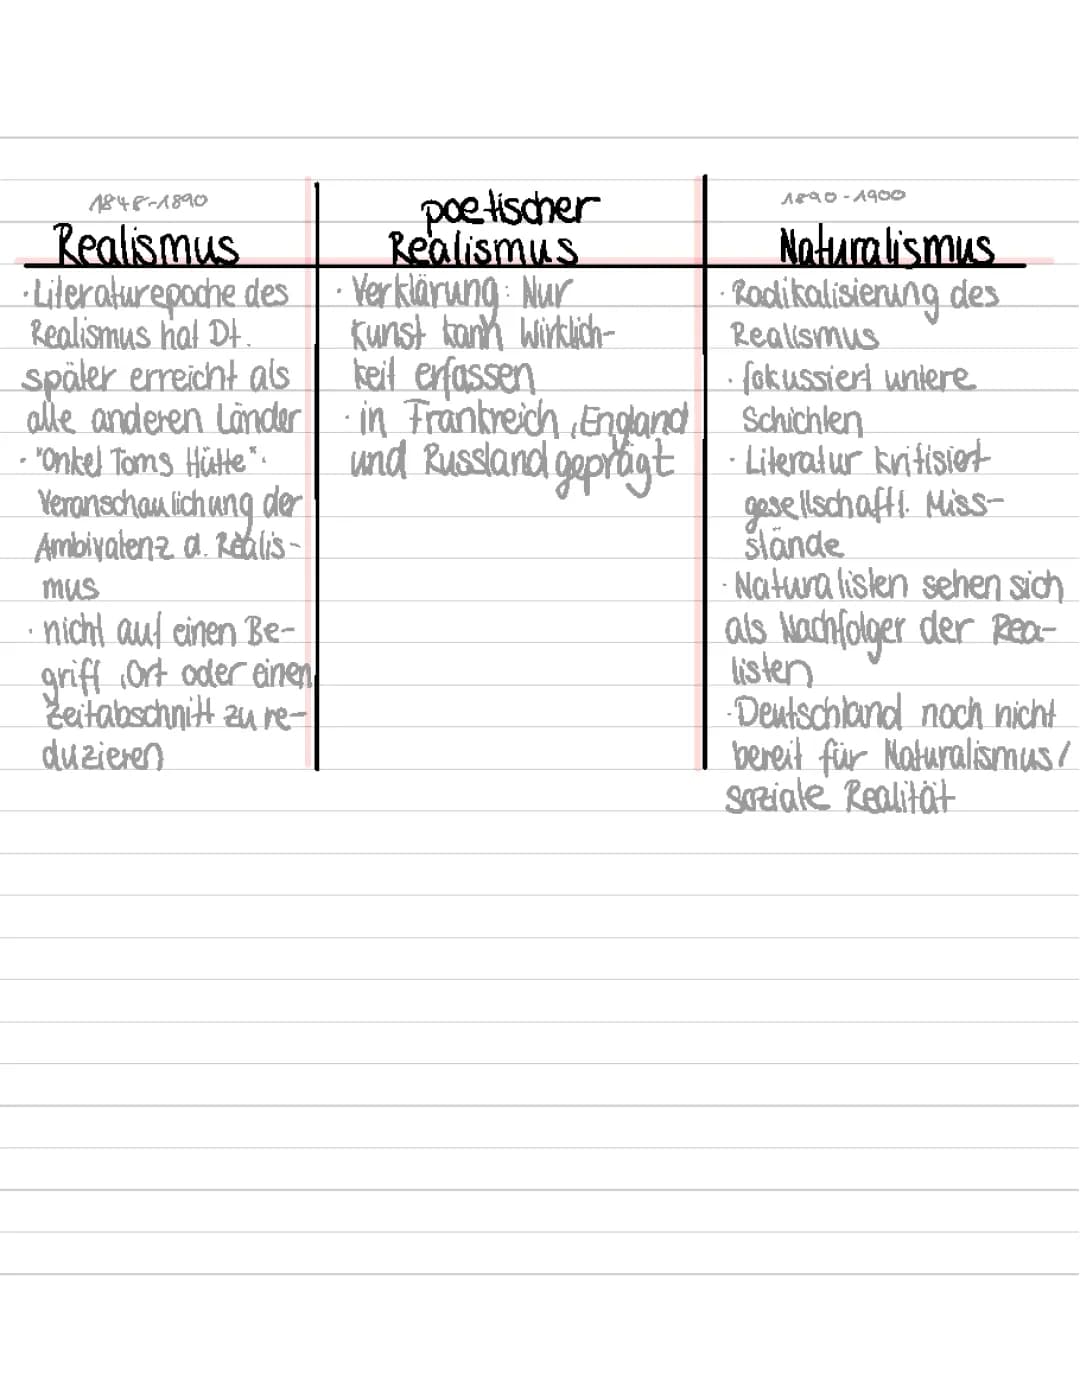 1848-1890
Realismus
· Literaturepoche des
Realismus hat Dt.
später erreicht als
alle anderen Länder
· "Onkel Toms Hütte":
Veranschaulichung der
Ambivalenz d. Realis-
mus
· nicht auf einen Be-
griff, Ort oder einen
Zeitabschnitt zu re-
duzieren
poetischer
Realismus
· Verklärung: Nur
Kunst kann Wirklich-
keit erfassen
· in Frankreich, England
und Russland geprägt
1890-1900
Naturalismus
· Radikalisierung des
Realismus
· fokussiert untere
Schichten
· Literatur kritisiert
gesellschaftl. Miss-
stände
· Naturalisten sehen sich
als Nachfolger der Rea-
listen
· Deutschland noch nicht
bereit für Naturalismus/
soziale Realität